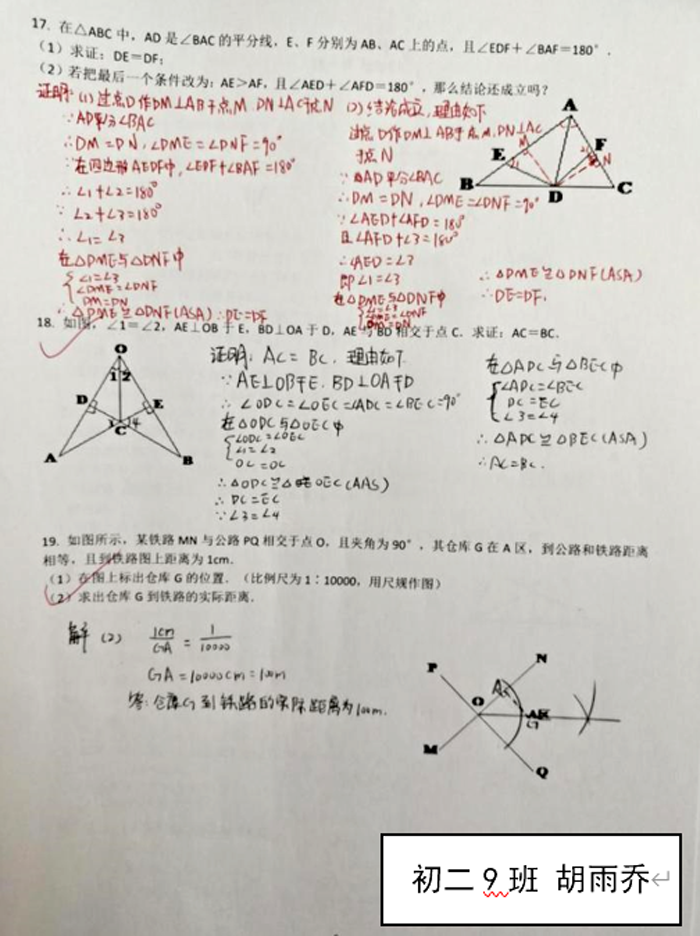 17. 在△ABC 中，AD 是∠BAC 的平分线，E、F 分别为 AB、AC 上的点，且∠EDF＋∠BAF＝180°．
（1）求证：DE＝DF；
（2）若把最后一个条件改为：AE＞AF，且∠AED＋∠AFD＝180°，那么结论还成立吗？
证明：(1) 过点D作DM⊥AB于点M DN⊥AC于点N
∵AD平分∠BAC
∴DM=DN,∠DME=∠DNF=90°
∵在四边形AEDF中,∠EDF+∠BAF=180°
∴∠1+∠2=180°
∵∠2+∠3=180°
∴∠1=∠3
在△DME与△DNF中
∠1=∠3
∠DME=∠DNF
DM=DN
∴△DME≌△DNF(ASA) ∴DE=DF
(2) 结论成立,理由如下
过点D作DM⊥AB于点M,DN⊥AC
于点N
∵AD平分∠BAC
∴DM=DN,∠DME=∠DNF=90°
∵∠AED+∠AFD=180°
且∠AFD+∠3=180°
∴∠AED=∠3
即∠1=∠3
在△DME与△DNF中
∠1=∠3
∠DME=∠DNF
DM=DN
∴△DME≌△DNF(ASA)
∴DE=DF.
A
M
E
F
N
B
D
C
18. 如图，∠1＝∠2，AE⊥OB 于 E，BD⊥OA 于 D，AE 与 BD 相交于点 C．求证：AC＝BC．
O
1 2
D
E
3 4
C
A
B
证明：AC=BC,理由如下
∵AE⊥OB于E,BD⊥OA于D
∴∠ODC=∠OEC=∠ADC=∠BEC=90°
在△ODC与△OEC中
∠ODC=∠OEC
∠1=∠2
OC=OC
∴△ODC≌△OEC(AAS)
∴DC=EC
∵∠3=∠4
在△ADC与△BEC中
∠ADC=∠BEC
DC=EC
∠3=∠4
∴△ADC≌△BEC(ASA)
∴AC=BC.
19. 如图所示，某铁路 MN 与公路 PQ 相交于点 O，且夹角为 90°，其仓库 G 在 A 区，到公路和铁路距离
相等，且到铁路图上距离为 1cm．
（1）在图上标出仓库 G 的位置．（比例尺为 1：10000，用尺规作图）
（2）求出仓库 G 到铁路的实际距离．
解 (2) 1cm/GA = 1/10000
GA=10000cm=100m
答:仓库G到铁路的实际距离为100m.
P
N
O
G
M
Q
初二9班 胡雨乔